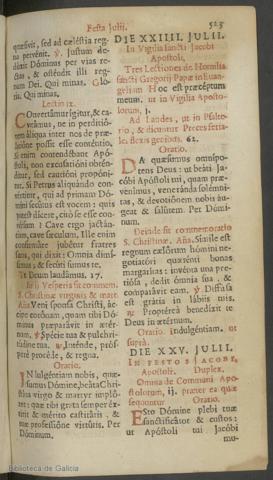 Festa Julii.
523
quæsivit, sed ad cælestia reg-
na pervenit. ℣. Justum de-
duxit Dóminus per vias rec-
tas, & osténdit illi reg-
num Dei. Qui minas. Glo-
ria. Qui minas.
Lectio ix.
COnvertámur ígitur, & ca-
veámus, ne in perditió-
nem áliqua inter nos de præ-
latióne possit esse conténtio,
si enim contendébant Apó-
stoli, non excusatióni obtén-
ditur, sed cautióni propóni-
tur. Si Petrus aliquándo con-
vérsus
est, qui ad primam Dó-
mini secútus est vocem: quis
potest dícere, citò se esse con-
vérsum? Cave ergo jactán-
tiam, cave sæculum. Ille enim
confirmáre jubétur fratres
suos, qui dixit: Omnia dimí-
simus, & secúti sumus te.
Te Deum laudámus. 17.
In ij. Vesperis fit commem.
S. Christinæ virginis & mart.
Aña Veni sponsa Christi, ác-
cipe corónam, quam tibi Dó-
minus præparávit in ætér-
num. ℣. Spécie tua & pulchri-
túdine tua. ℟. Inténde, prós-
perè procéde, & regna.
Oratio.
INdulgéntiam nobis, quæ-
sumus Dómine, beáta Chri-
stina virgo & martyr impló-
ret: quæ tibi grata semper éx-
titit & mérito castitátis, &
tuæ professióne virtútis. Per
Dóminum.
DIE XXIIII. JULII.
In Vigilia sancti Jacobi
Apostoli.
Tres Lectiones de Homilia
sancti Gregorij Papæ in Evan-
gelium Hoc est præceptum
meum, ut in Vigilia Aposto-
lorum, j.
Ad Landes, ut in Psalte-
rio, & dicuntur Preces feria-
les flexis genibus. 62.
Oratio.
DA quæsumus omnípo-
tens Deus: ut beáti Ja-
cóbi Apóstoli tui, quam præ-
venímus, veneránda solémni-
tas, & devotiónem nobis áu-
geat & salútem. Per Dómi-
num.
Deinde fit commemoratio
S. Christinæ. Aña. Símile est
regnum cælórum hómini ne-
gotiatóri quærénti bonas
margarítas: invénta una pre-
tiósa, dedit ómnia sua, &
comparávit eam. ℣. Diffúsa
est grátia in lábiis tuis.
℟. Proptérea benedíxit te
Deus in ætérnum.
Oratio. Indulgéntiam. ut
suprà.
DIE XXV. JULII.
IN FESTO S. JACOBI,
Apostoli. Duplex.
Omnia de Communi Apo-
stolorum, ij. præter ea quæ
sequuntur. Oratio.
ESto Dómine plebi tuæ
sanctificátor & custos:
ut Apóstoli tui Jacóbi
mu-
Biblioteca de Galicia